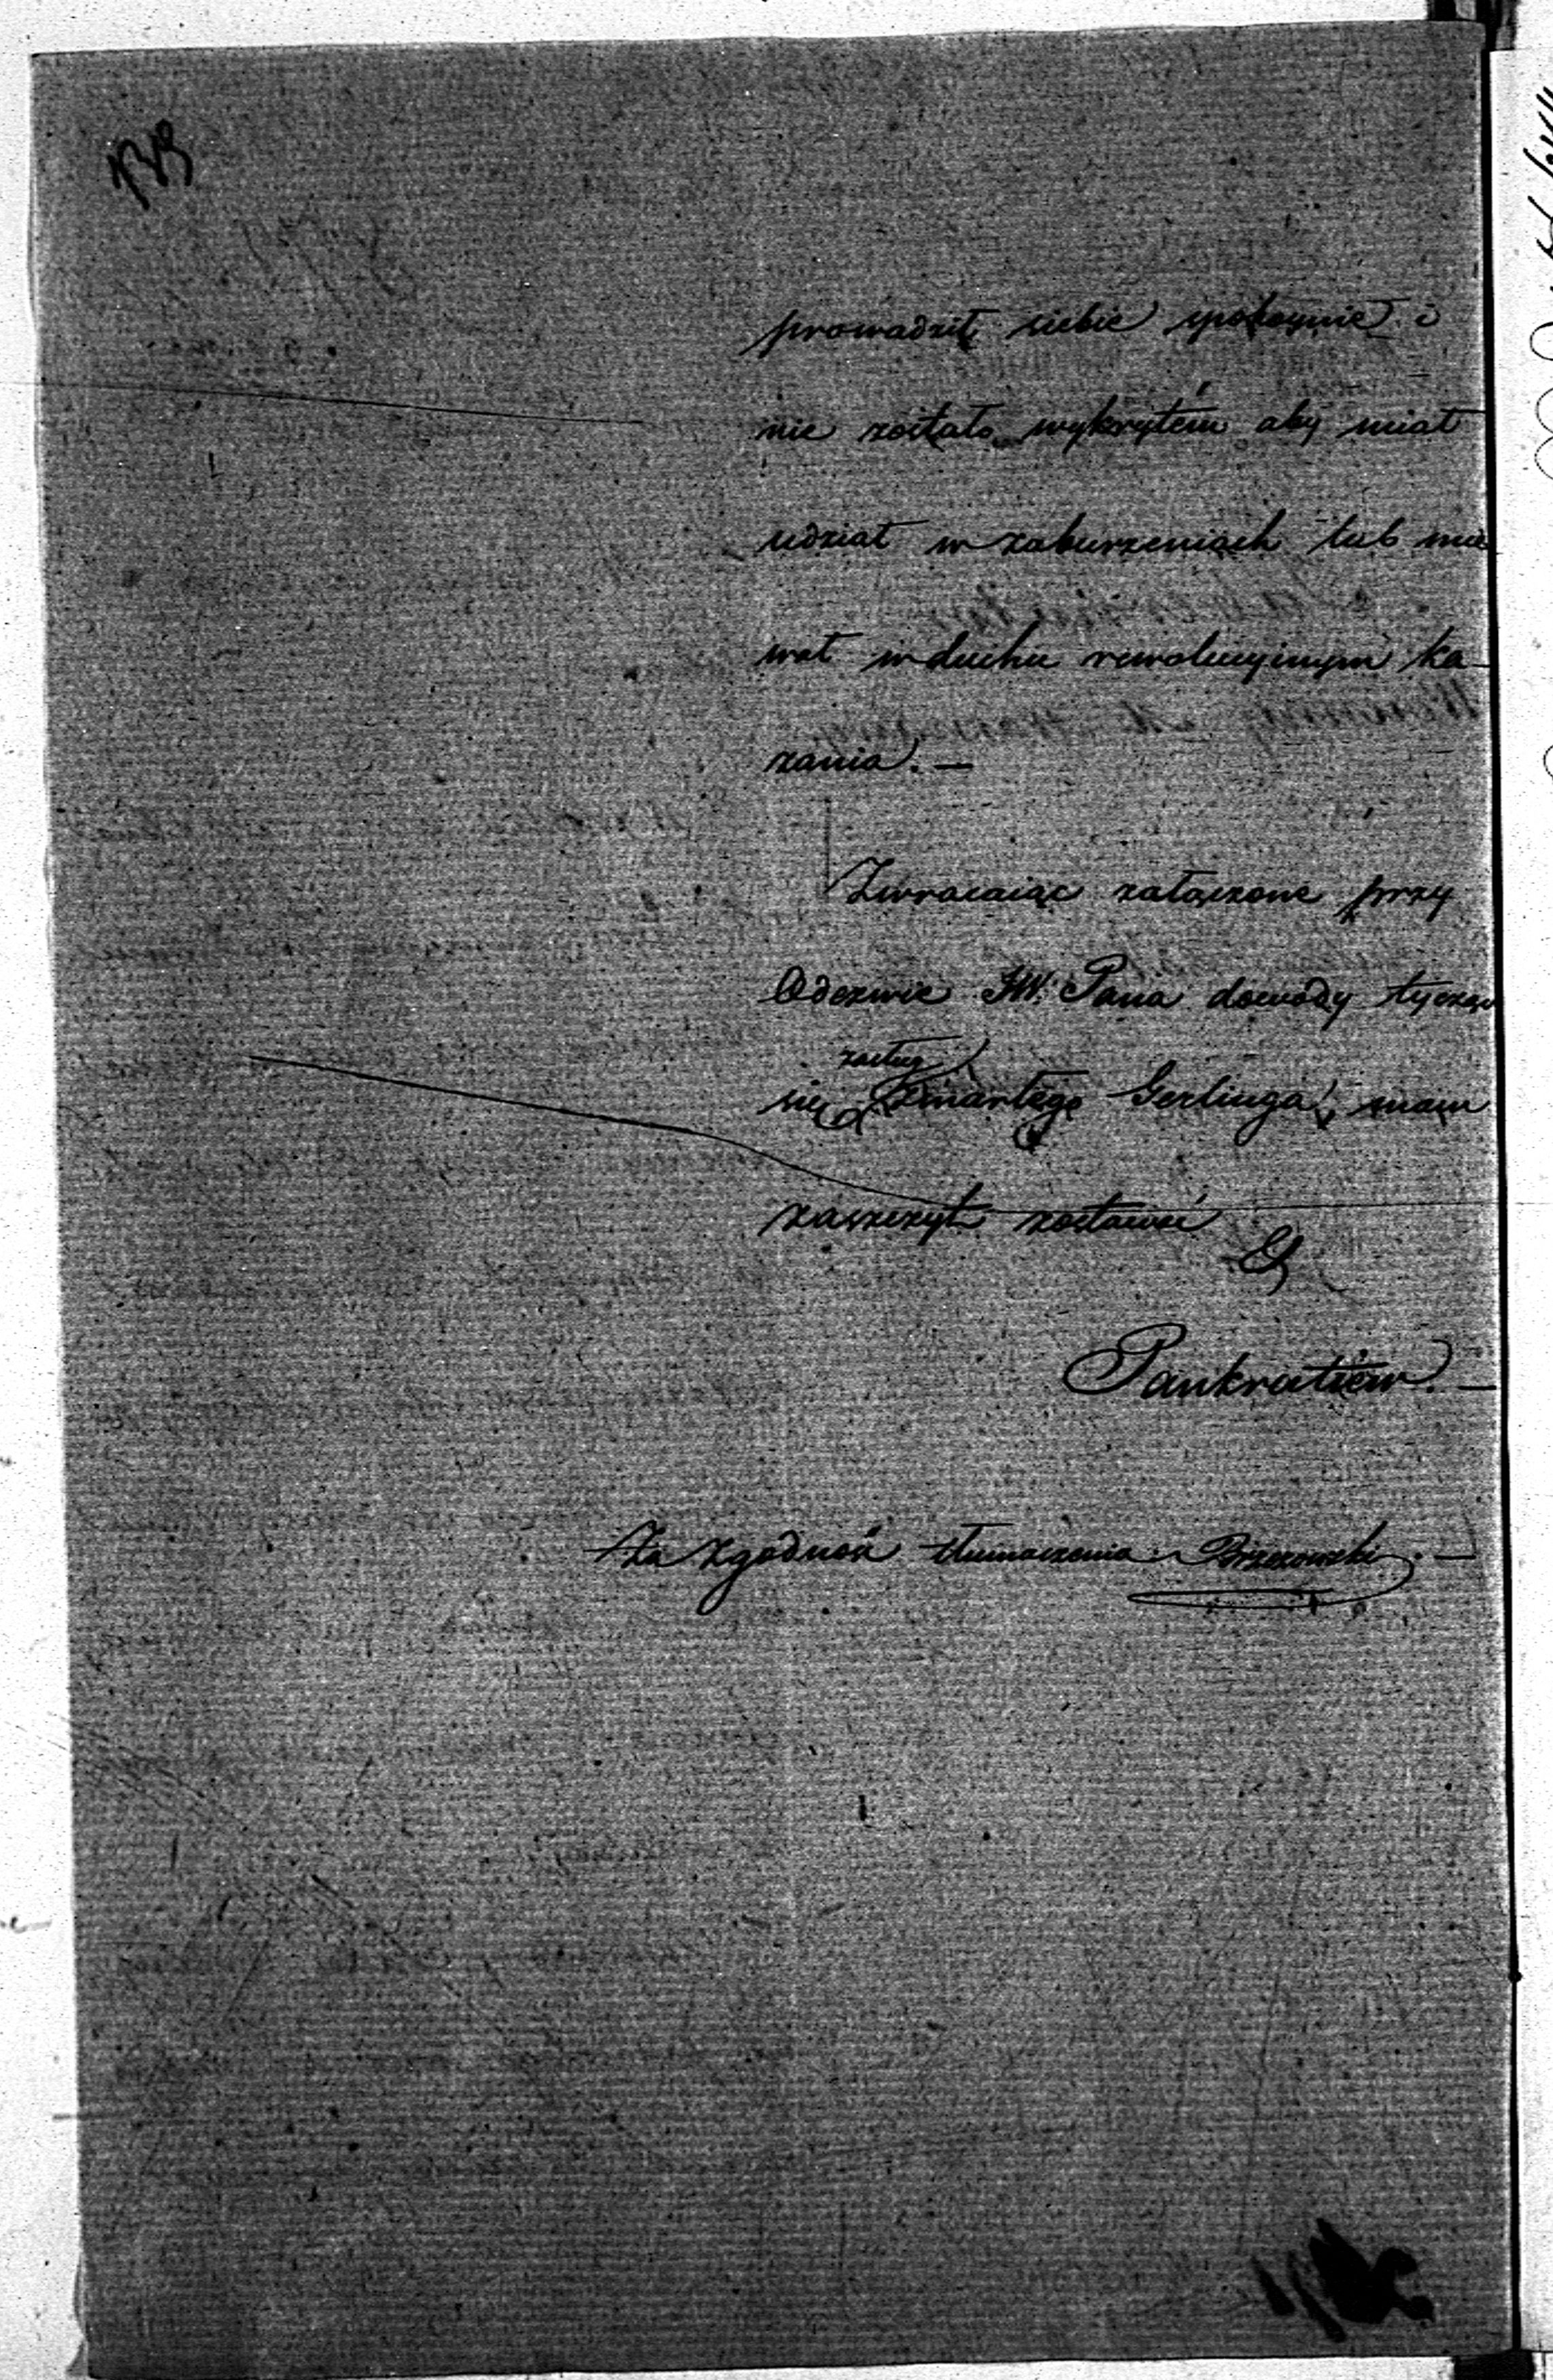 prowadził siebie spokoynie i
nie zostało wykrytém aby miał
udział w zaburzeniach lub mie
wał w duchu rewolucyinym ka-
zania. —
Zwracaiąc załączone przy
Odezwie JW. Pana dowody tyczące
zasług
się zmarłego Gerlinga, mam
zaszczyt zostawać
Pankratiew. —
Za zgodność tłumaczenia Brzezowski. —